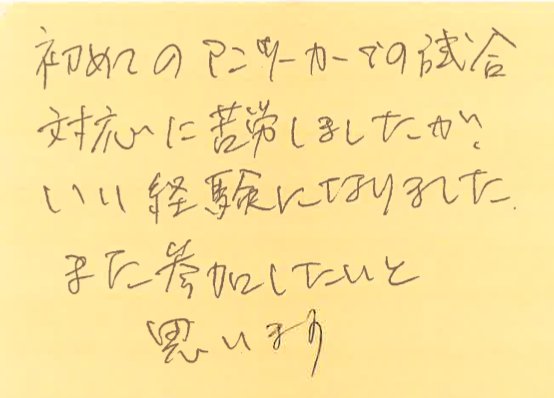 初めてのアンツーカーでの試合
対応に苦労しましたが、
いい経験になりました。
また参加したいと
思います